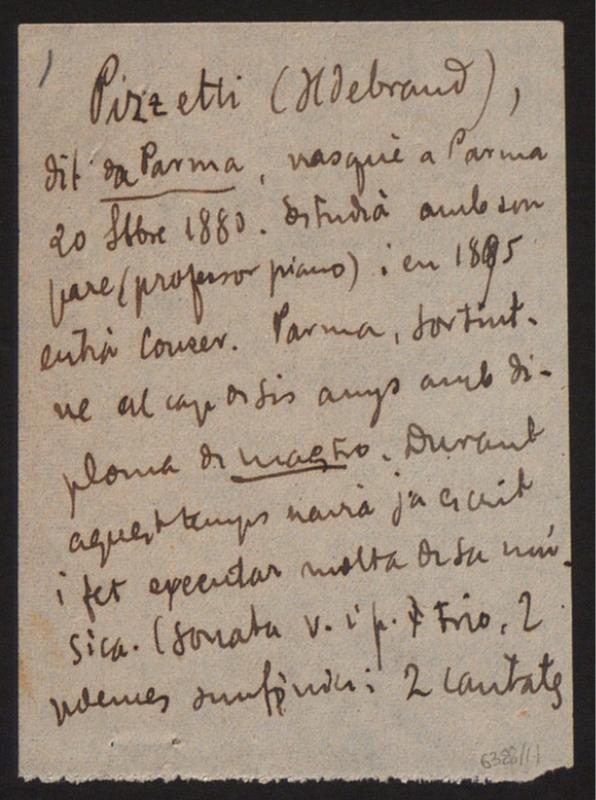 Pizzetti (Ildebrand),
dit da Parma, nasqué a Parma
20 Stbre 1880. Estudià amb son
pare (professor piano) i en 1895
entrà Conser. Parma, sortint-
ne al cap de sis anys amb di-
ploma de maestro. Durant
aquest temps havia ja escrit
i fet executar molta de sa mú-
sica. (Sonata v. i p. trio, 2
poemes simfònics i 2 cantates
6388/11